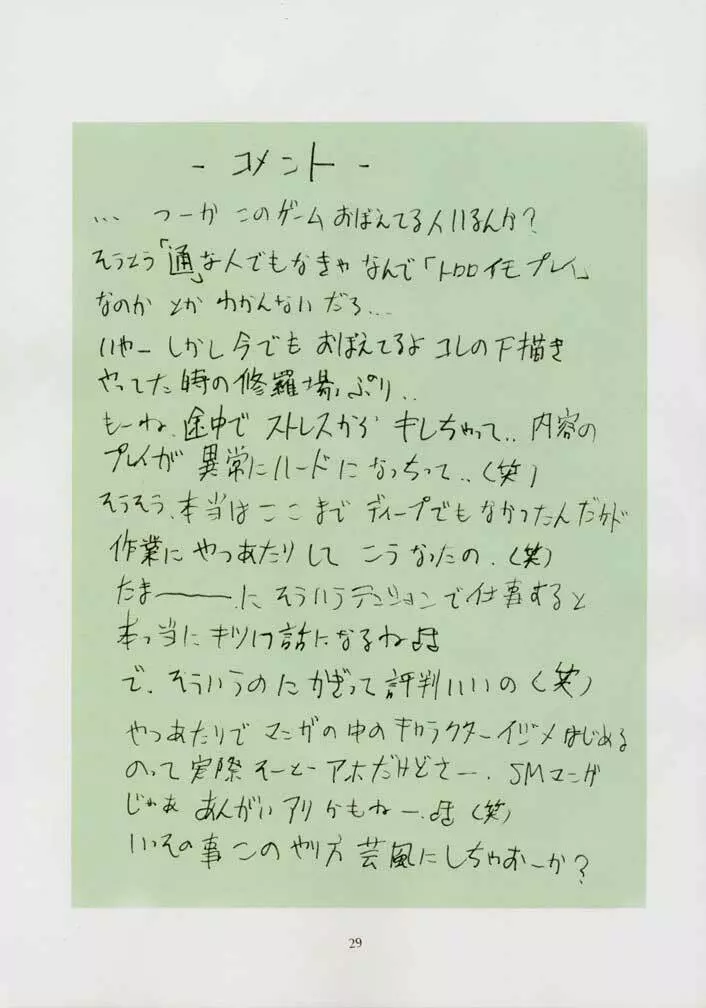 - コメント -
… つーか このゲーム おぼえてる人いるんか?
そうとう「通」な人でもなきゃ なんで「トロロイモプレイ」
なのか とか わかんないだろ…
いやー しかし今でも おぼえてるよ コレの下描き
やってた時の修羅場っぷり..
もーね、途中で ストレスから キレちゃって.. 内容の
プレイが 異常にハードになっちって..(笑)
そうそう、本当は ここまで ディープでもなかったんだけど
作業に やつあたりして こうなったの.(笑)
たまーーーに そういうテンションで仕事すると
本っ当に キツイ話になるね♪♬
で、そういうのにかぎって 評判いいの(笑)
やつあたりで マンガの中のキャラクターイジメはじめる
のって 実際 そーとーアホだけどさー. SMマンガ
じゃあ あんがい アリかもねー.♪♬ (笑)
いっその事 このやり方 芸風にしちゃおーか?
29